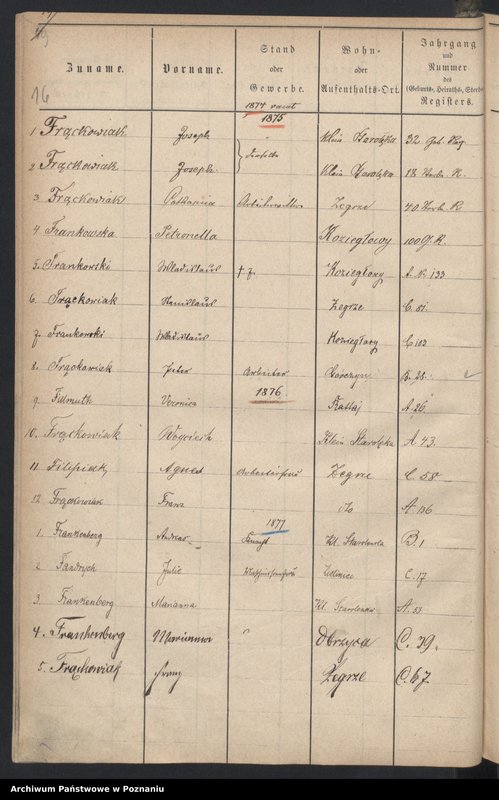 16
Zuname.
Vorname.
Stand
oder
Gewerbe.
Wohn-
oder
Aufenthalts-Ort.
Jahrgang
und
Nummer
des
(Geburts-, Heiraths-, Sterbe-
Registers.
1874 vacat
1875
1 Frąckowiak Joseph Klein Starolęka 32 Geb. Reg.
2 Frąckowiak Joseph Klein Starolęka 18 Sterb. R.
3 Frąckowiak Zegrze 40 Sterb. R
4. Frankowska Petronella Koziegłowy 100 G. R.
5. Frankowski Wladislaus Koziegłowy A. N. 133
6. Frąckowiak Stanislaus Zegrze C. 81.
7. Frankowski Wladislaus Koziegłowy C 103
8. Frąckowiak Peter Arbeiter Gorczyn B. 28.
1876.
9. Filmuth Veronica Rattaj A. 26
10. Frąckowiak Woyciech Klein Starolęka A 43.
11 Filipiak Agnes Arbeiterfrau Zegrze C. 58
12 Frąckowiak Franz do A. 136
1877
1. Frankenberg Andreas Knecht Kl. Starolenka B. 1
2 Fandrych Julie C. 17
3. Frankenberg Marianna Kl. Starolenka A. 53
4. Frankenberg Marianna " Obrzyca C. 39.
5. Frąckowiak Franz Zegrze C. 67.
Archiwum Państwowe w Poznaniu